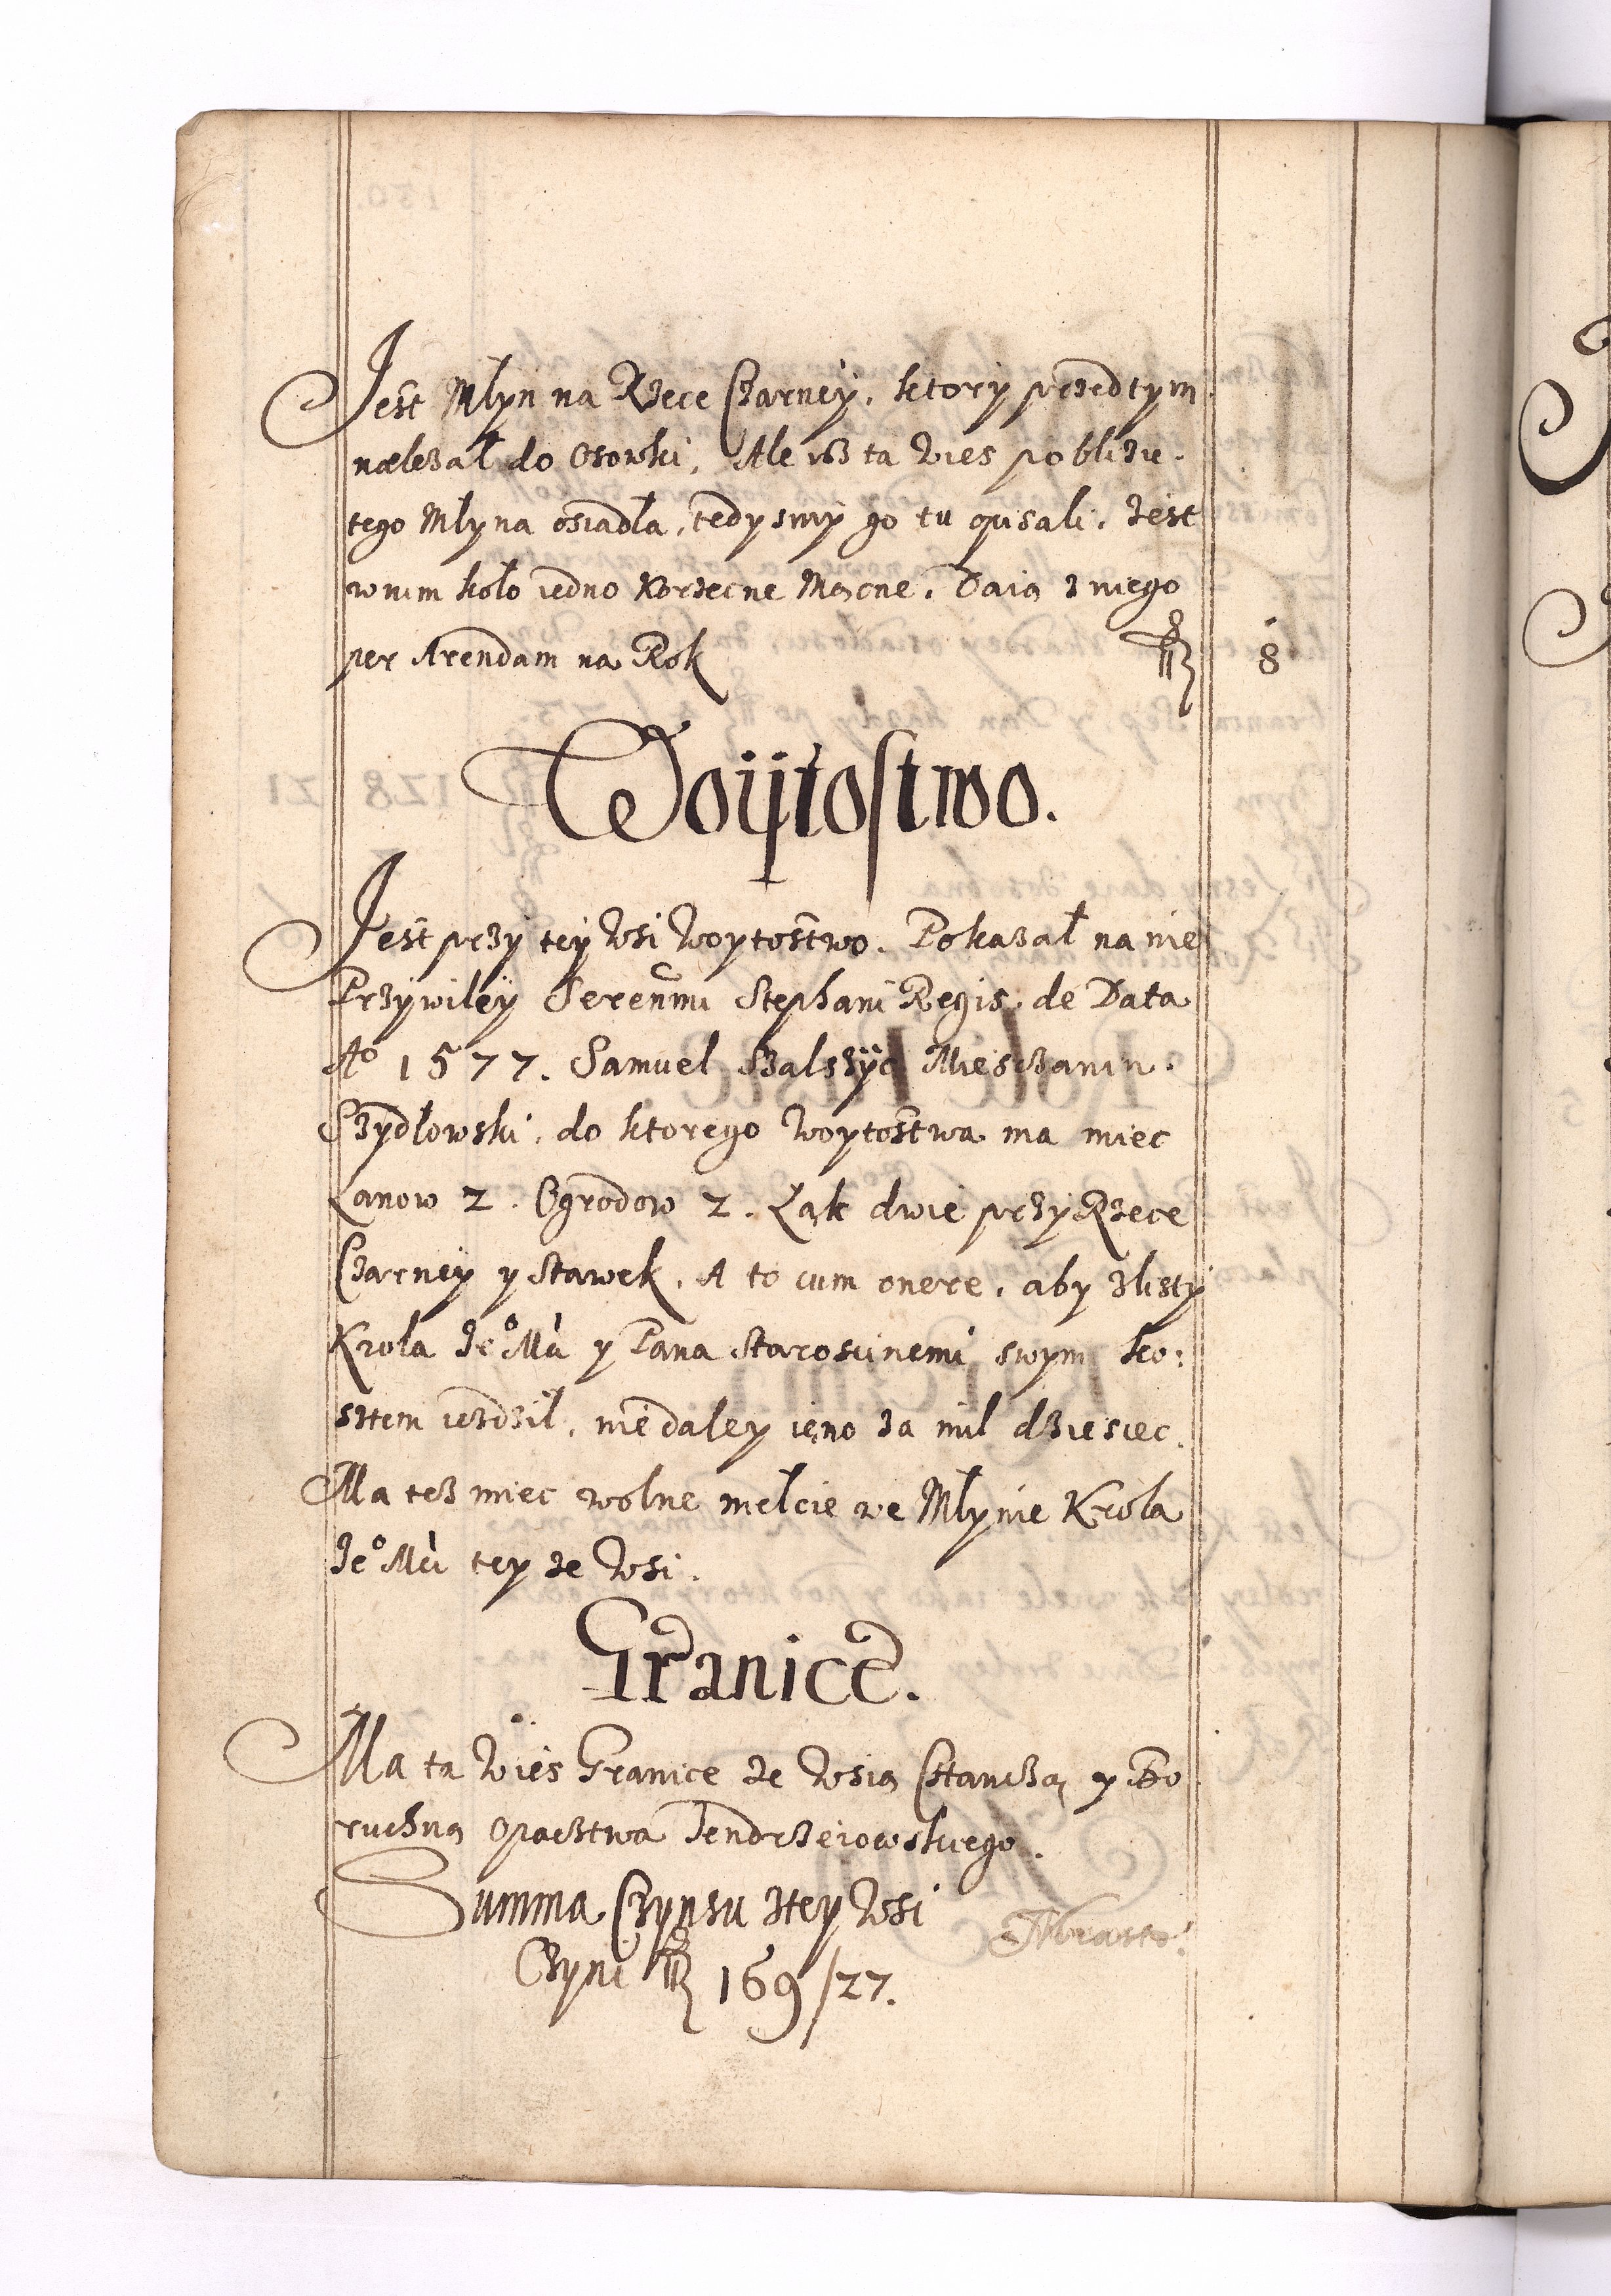 Jest Mlyn na Rzece Czarney, ktory przedtym
nalezał do Osowki, Ale isz ta Wies poblizu
tego Mlyna osiadla, tedysmy go tu opisali, Jest
w nim koło iedno Korzecne Mączne. Daią z niego
per Arendam na Rok 8
Woijtostwo.
Jest przy tey Wsi Woytostwo. Pokazał na nie
Przywiley Serenmi Stephani Regis de Data
Aº 1577. Samuel Mieszczanin
Szydłowski, do ktorego Woytostwa ma miec
Łanow 2. Ogrodow 2. Łąk dwie przy Rzece
Czarney y Stawek. A to cum onere, aby z listy
Krola Jeº Mci y Pana Staroscinemi swym ko:
sztem iezdził, niedaley ieno za mil dziesiec.
Ma tesz miec wolne melcie we Mlynie Krola
Jeº Mci tey ze Wsi.
Granice.
Ma ta Wies Granice ze Wsią y Bo
ruchną Opactwa Jendrzeiowskiego.
Summa Czynszu z tey Wsi
Czyni 169/27.
Miasto